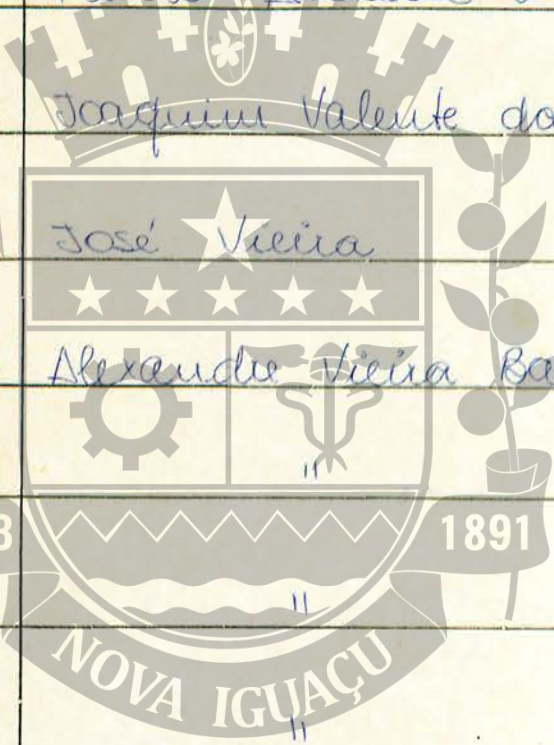 Joaquim Valente do
José Vieira
Alexandre Vieira Ba
"
3 1891
"
NOVA IGUAÇU
"